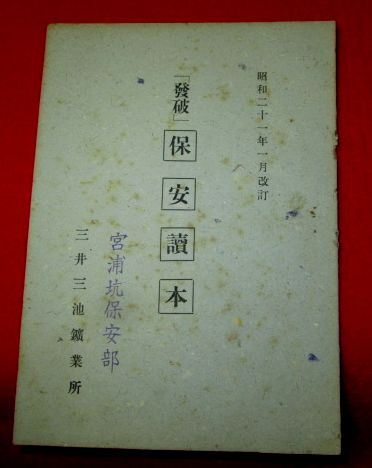 昭和二十一年一月改訂
「發破」保安讀本
宮浦坑保安部
三井三池鑛業所